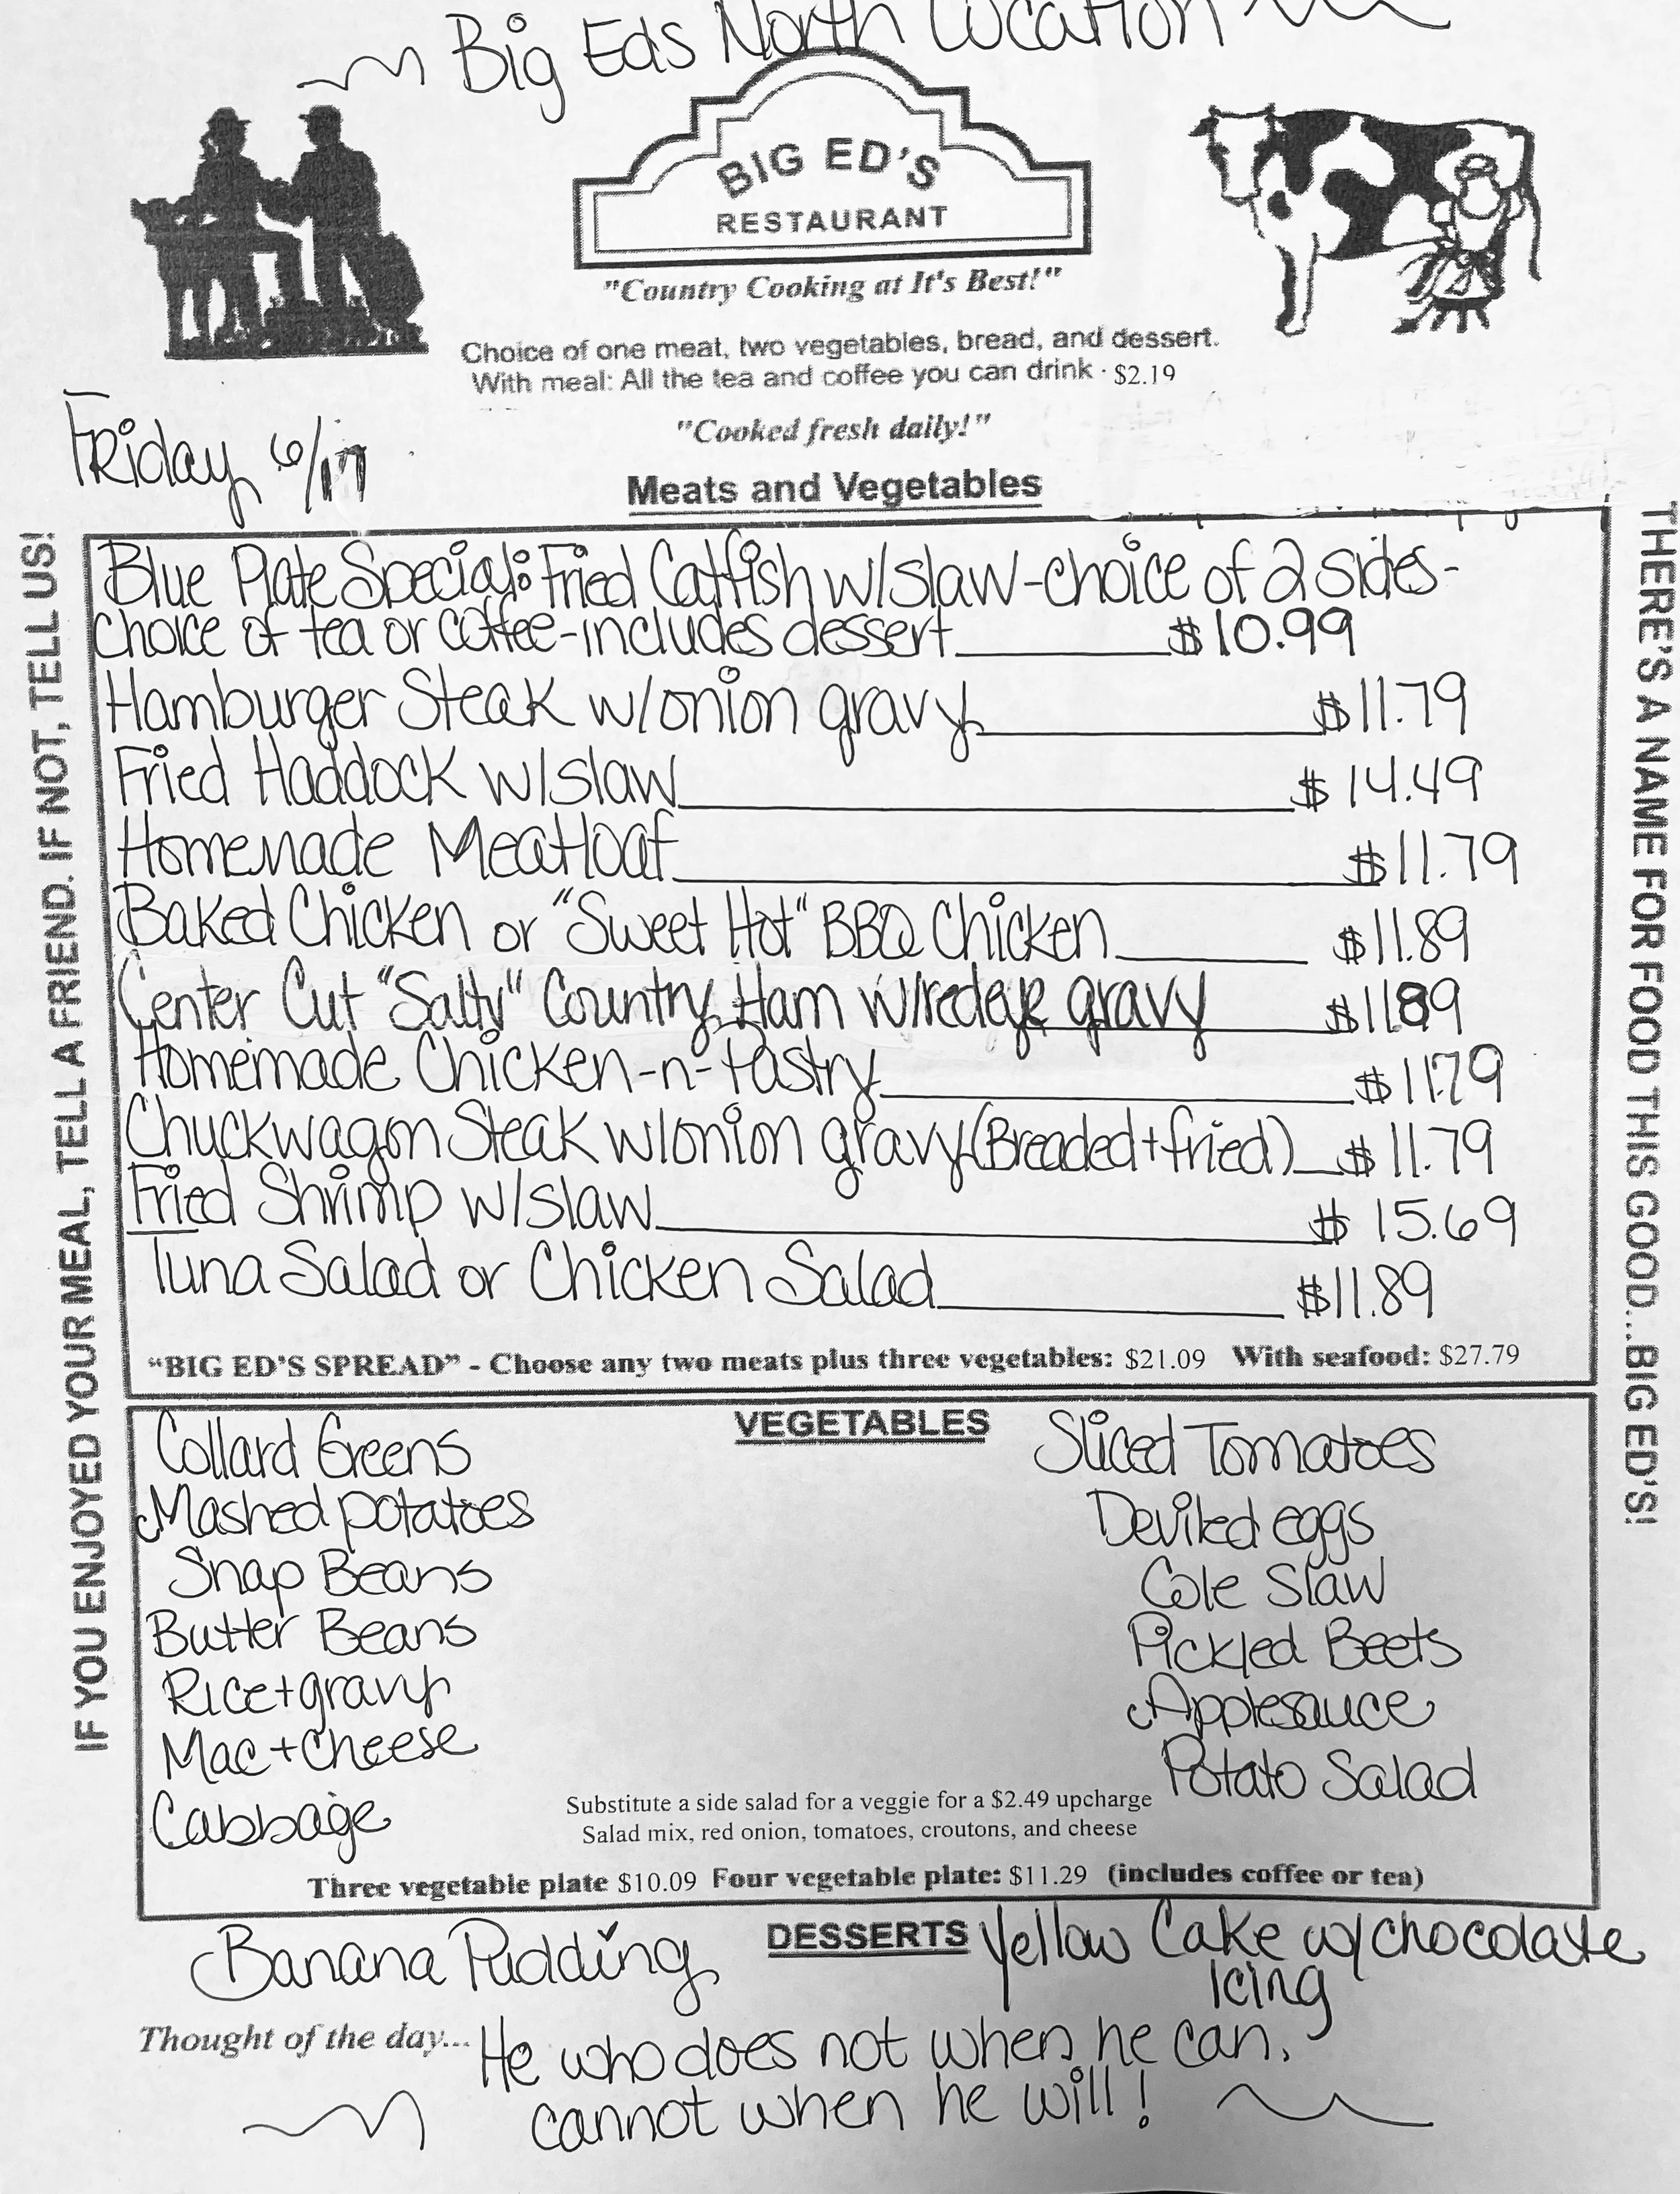 ~ Big Eds North Location ~
BIG ED'S
RESTAURANT
"Country Cooking at It's Best!"
Choice of one meat, two vegetables, bread, and dessert.
With meal: All the tea and coffee you can drink · $2.19
"Cooked fresh daily!"
Friday 6/17
Meats and Vegetables
IF YOU ENJOYED YOUR MEAL, TELL A FRIEND. IF NOT, TELL US!
Blue Plate Special: Fried Catfish w/slaw-choice of 2 sides-
choice of tea or coffee-includes dessert $10.99
Hamburger Steak w/onion gravy $11.79
Fried Haddock w/slaw $14.49
Homemade Meatloaf $11.79
Baked Chicken or "Sweet Hot" BBQ Chicken $11.89
Center Cut "Salty" Country Ham w/redeye gravy $11.89
Homemade Chicken-n-Pastry $11.79
Chuckwagon Steak w/onion gravy (Breaded+fried) $11.79
Fried Shrimp w/slaw $15.69
Tuna Salad or Chicken Salad $11.89
"BIG ED'S SPREAD" - Choose any two meats plus three vegetables: $21.09 With seafood: $27.79
THERE'S A NAME FOR FOOD THIS GOOD...BIG ED'S!
VEGETABLES
Collard Greens
Mashed potatoes
Snap Beans
Butter Beans
Rice+gravy
Mac+Cheese
Cabbage
Sliced Tomatoes
Deviled eggs
Cole Slaw
Pickled Beets
Applesauce
Potato Salad
Substitute a side salad for a veggie for a $2.49 upcharge
Salad mix, red onion, tomatoes, croutons, and cheese
Three vegetable plate $10.09 Four vegetable plate: $11.29 (includes coffee or tea)
DESSERTS
Banana Pudding
Yellow Cake w/chocolate
Icing
Thought of the day... He who does not when he can,
cannot when he will!